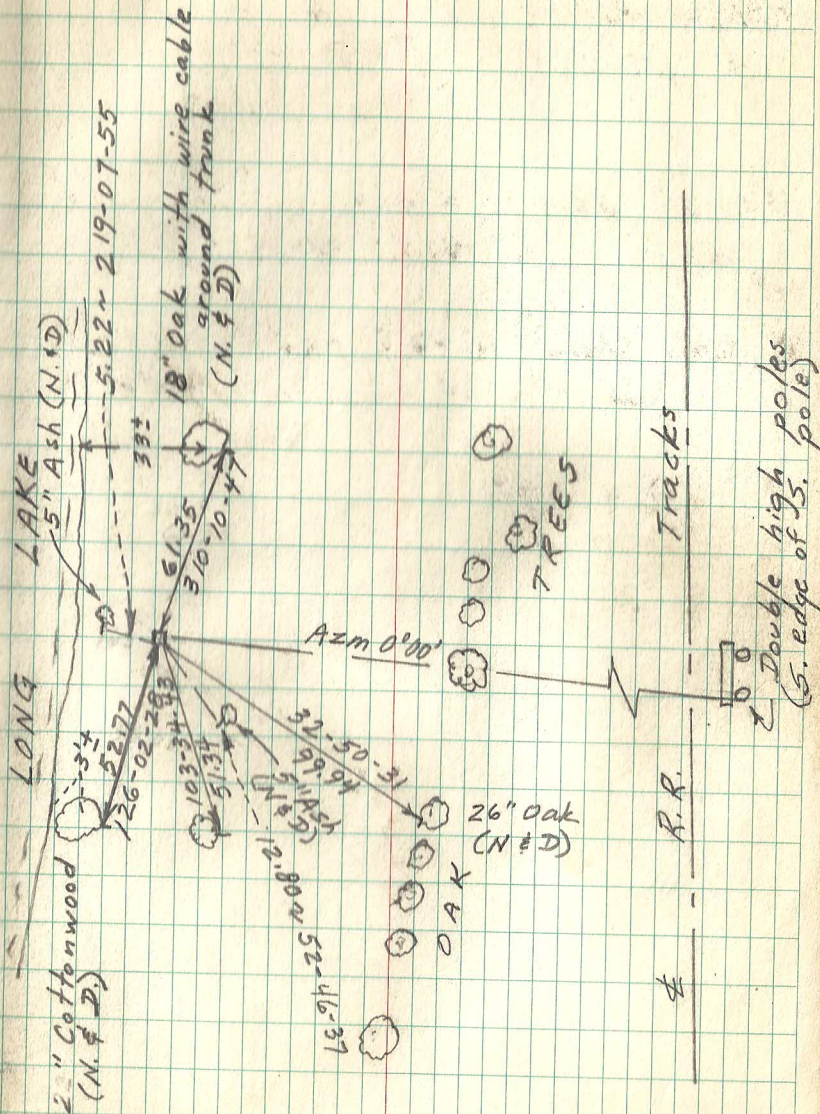 LONG LAKE
5" Ash (N. & D)
5.22 ~ 219-07-55
33±
18" Oak with wire cable
around trunk
(N. & D)
61.35
310-10-47
3'±
52.77
126-02-28
" Cottonwood
(N. & D.)
103-34-43
51.34
12.80 ~ 52-46-37
Azm 0°00'
26" Oak
(N & D)
OAK
TREES
℄ R.R. Tracks
Double high poles
(S. edge of S. pole)